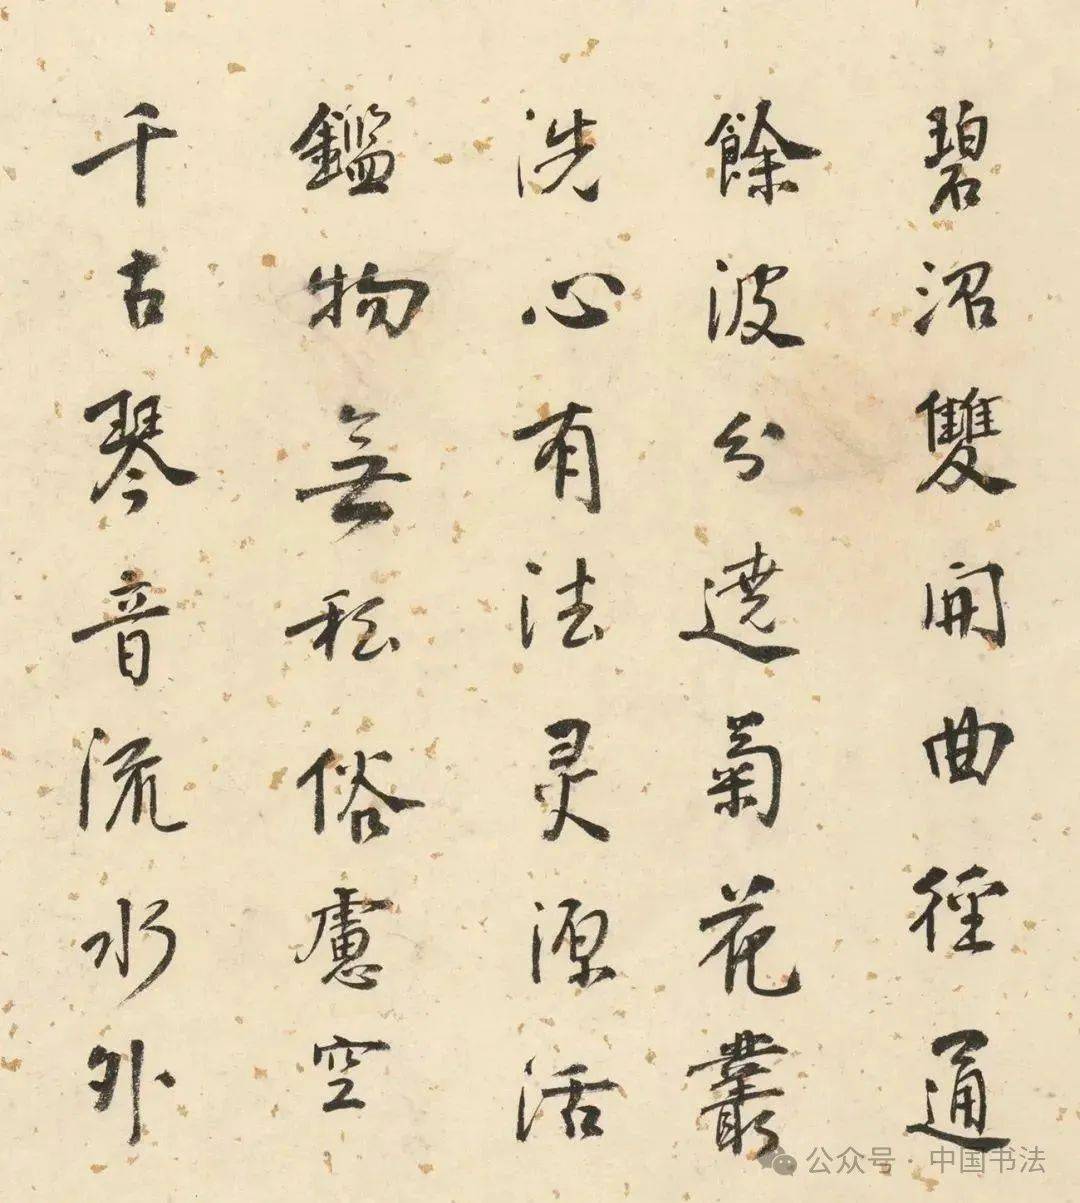 碧沼雙開曲徑通
餘波分遶菊花叢
洗心有法灵源活
鑑物無私俗慮空
千古琴音流水外
公众号 · 中国书法